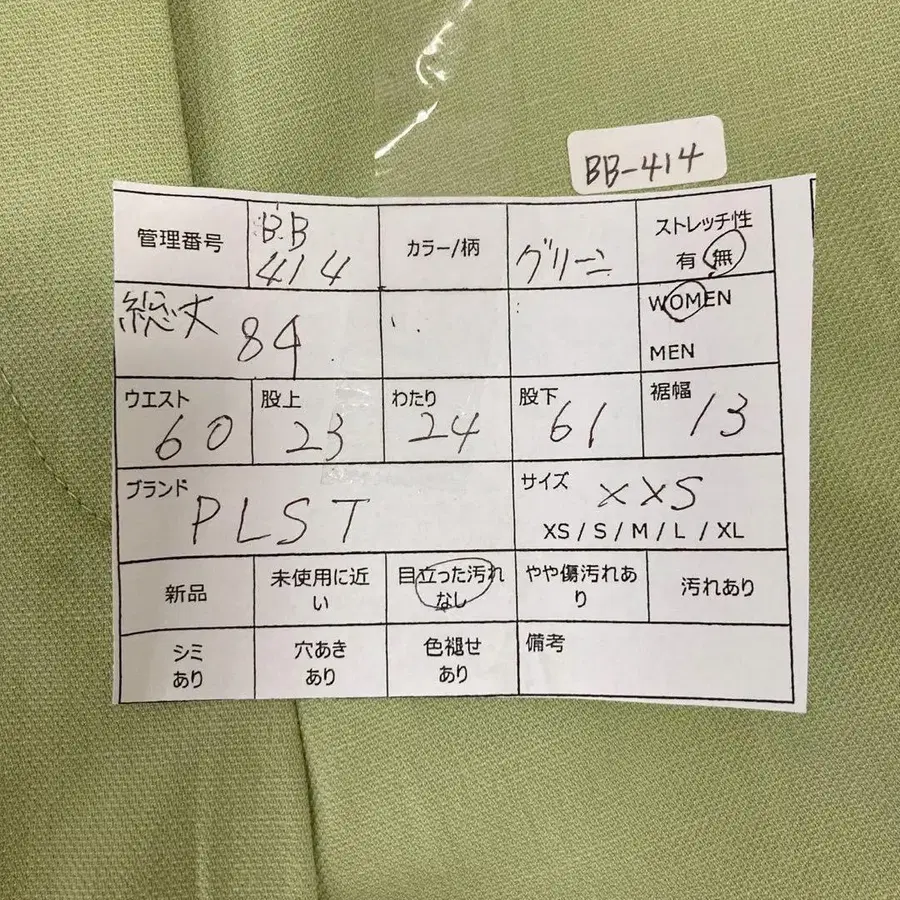 BB-414
管理番号
BB
414
カラー/柄
グリーン
ストレッチ性
有 無
総丈
84
WOMEN
MEN
ウエスト
60
股上
23
わたり
24
股下
61
裾幅
13
ブランド
PLST
サイズ
XXS
XS / S / M / L / XL
新品
未使用に近
い
目立った汚れ
なし
やや傷汚れあ
り
汚れあり
シミ
あり
穴あき
あり
色褪せ
あり
備考